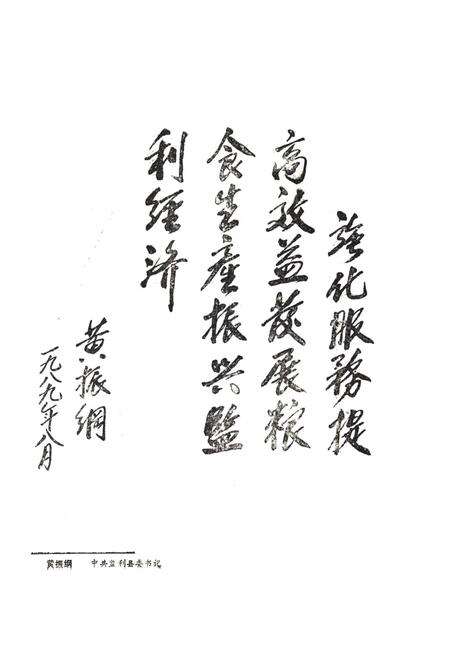 强化服務提
高效益发展粮
食生產振兴監
利經济
黄振綱
一九八九年八月
黄振綱 中共监利县委书记